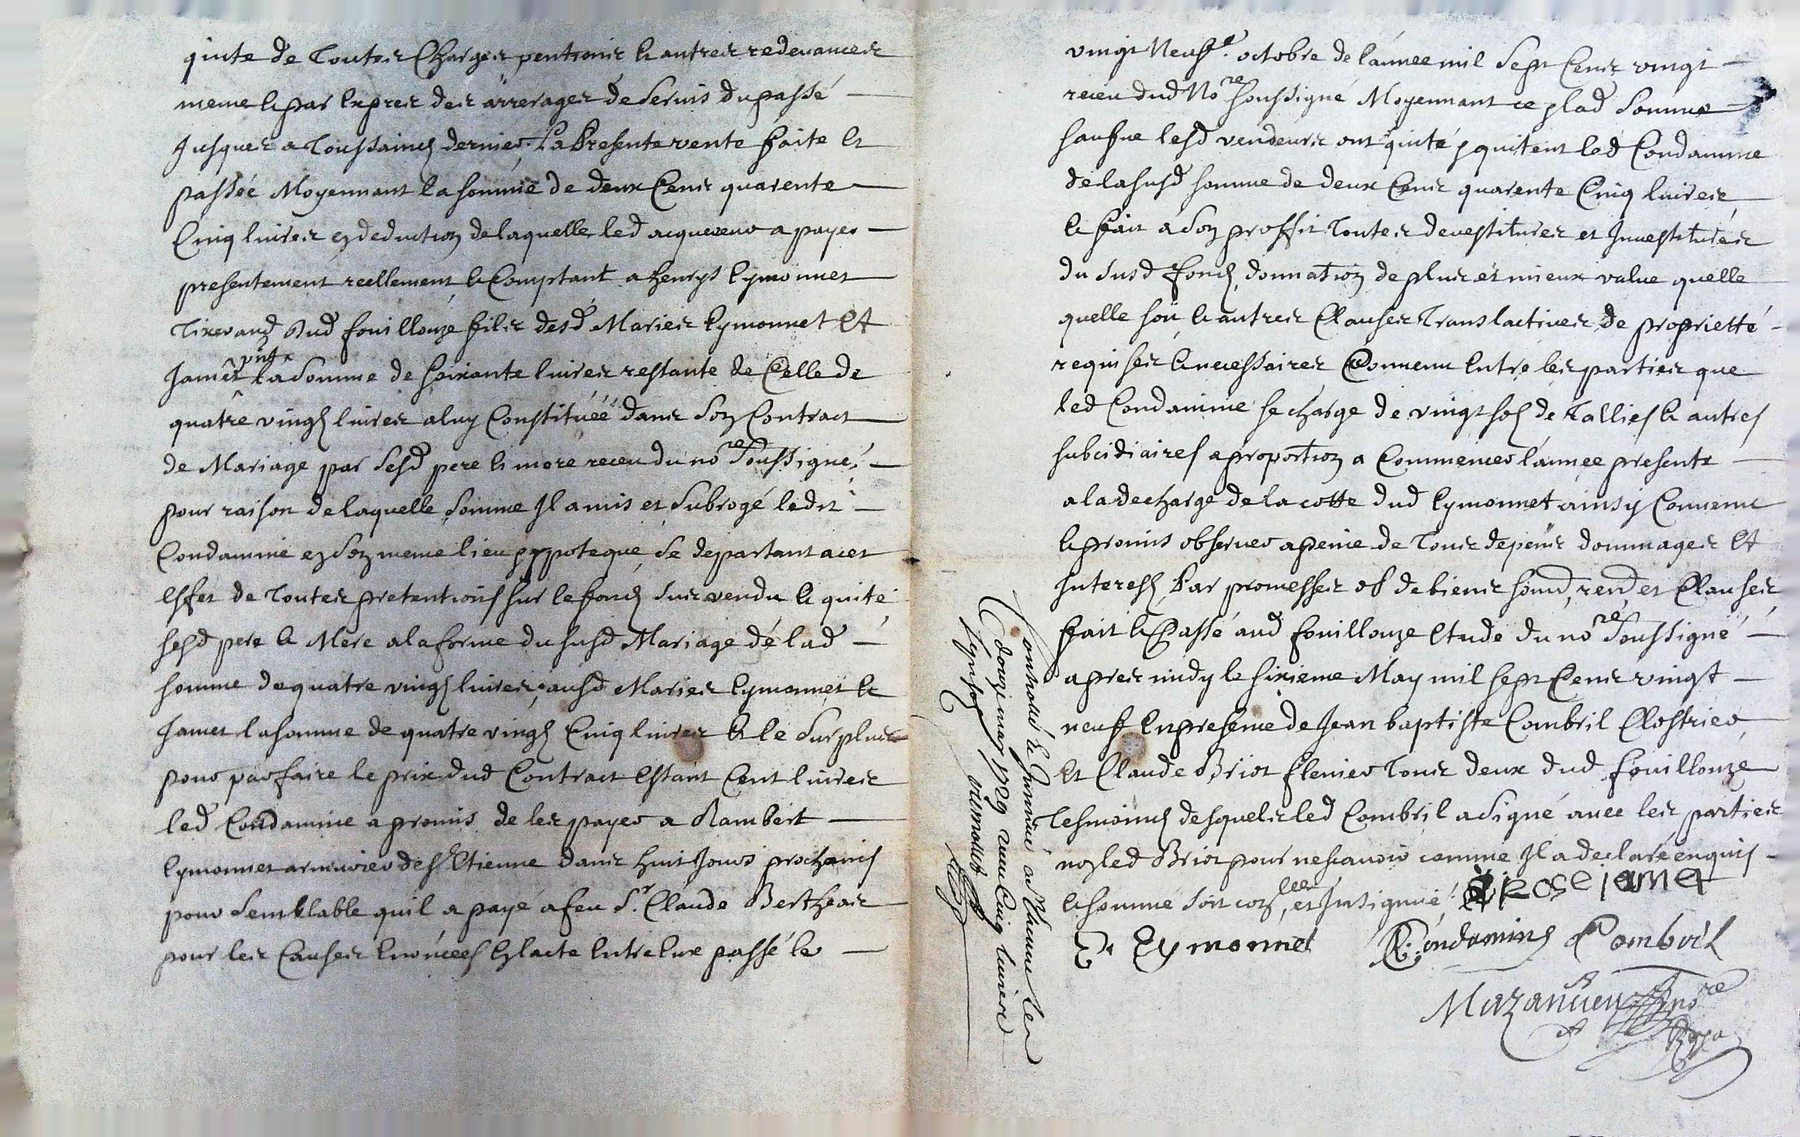 quite de Toutes Charges pentions & autres redevances
meme & par Expres des arrerages de Servis du passé
Jusques a Toussaincs dernier. La Presente vente faite et
passée Moyennant la somme de deux Cens quarente
Cinq livres en deduction de laquelle led acquereur a payer
presentement reellement & Comptant a henrys Eymonnet
Tixerand dud fouillouze fils desd Maries Eymonnet Et
Jamet la Somme de soixante livres restante de Celle de
quatre vingts livres a luy Constituéé dans son Contract
de Mariage par sesd pere & mere receu du nore Soussigné
pour raison de laquelle somme Il a mis et Subrogé ledit
Condamine en son meme lieu hypoteque, Se departant a cet
effet de Toutes pretentions sur le fonds sus vendu & quite
sesd pere & Mere a la forme du susd Mariage de lad
somme de quatre vingts livres, ausd Maries Eymonnet &
Jamet la somme de quatre vings Cinq livres & le Surplus
pour parfaire le prix dud Contract Estant Cent livres
led Condamine a promis de les payer a Rambert
Eymonnet armurier de St Etienne dans huit Jours prochains
pour Semblable quil a payé a feu Sr. Claude Bertheas
pour les Causes Enoncees En lacte Entre Eux passé le
vingt Neufe. octobre de lannee mil Sept Cens vingt
receu dud Nore soussigné Moyennant ce plad Somme
lesd vendeurs ont quité & quitent led Condamine
de la susd somme de deux Cens quarente Cinq livres
& fait a Son proffit Toutes devestitures et Investitures
du susd fonds, donnation de plus et mieux value quelle
quelle soit & autres Clauses Translatives de proprietté
requises & necessaires Convenu Entre les parties que
led Condamine se charge de vingt sols de Tallies & autres
subcidiaires a proportion a Commencer lannee presente
a la decharge de la cotte dud Eymonnet ainsy Convenu
& promis observer a peine de Tous depens dommages Et
Interests Par promesses ob de biens soumd, rend et Clauses
fait & Passé aud fouillouze Etude du nore Soussigné
apres midy le sixieme May mil sept Cens vingt
neuf En presence de Jean baptiste Combril Clostrier
Et Claude Briot Tous deux dud fouillouze
Tesmoins desquels led Combril a signé avec les parties
non led Briot pour ne scavoir comme Il a declaré enquis
& sommé soit con, et Insignué rose jamet
Eymonnet Condamine Combril
Mazancieu nore
Roya
Controllé & Insinué a St Etienne le
douze may 1729 receu Cinq livres